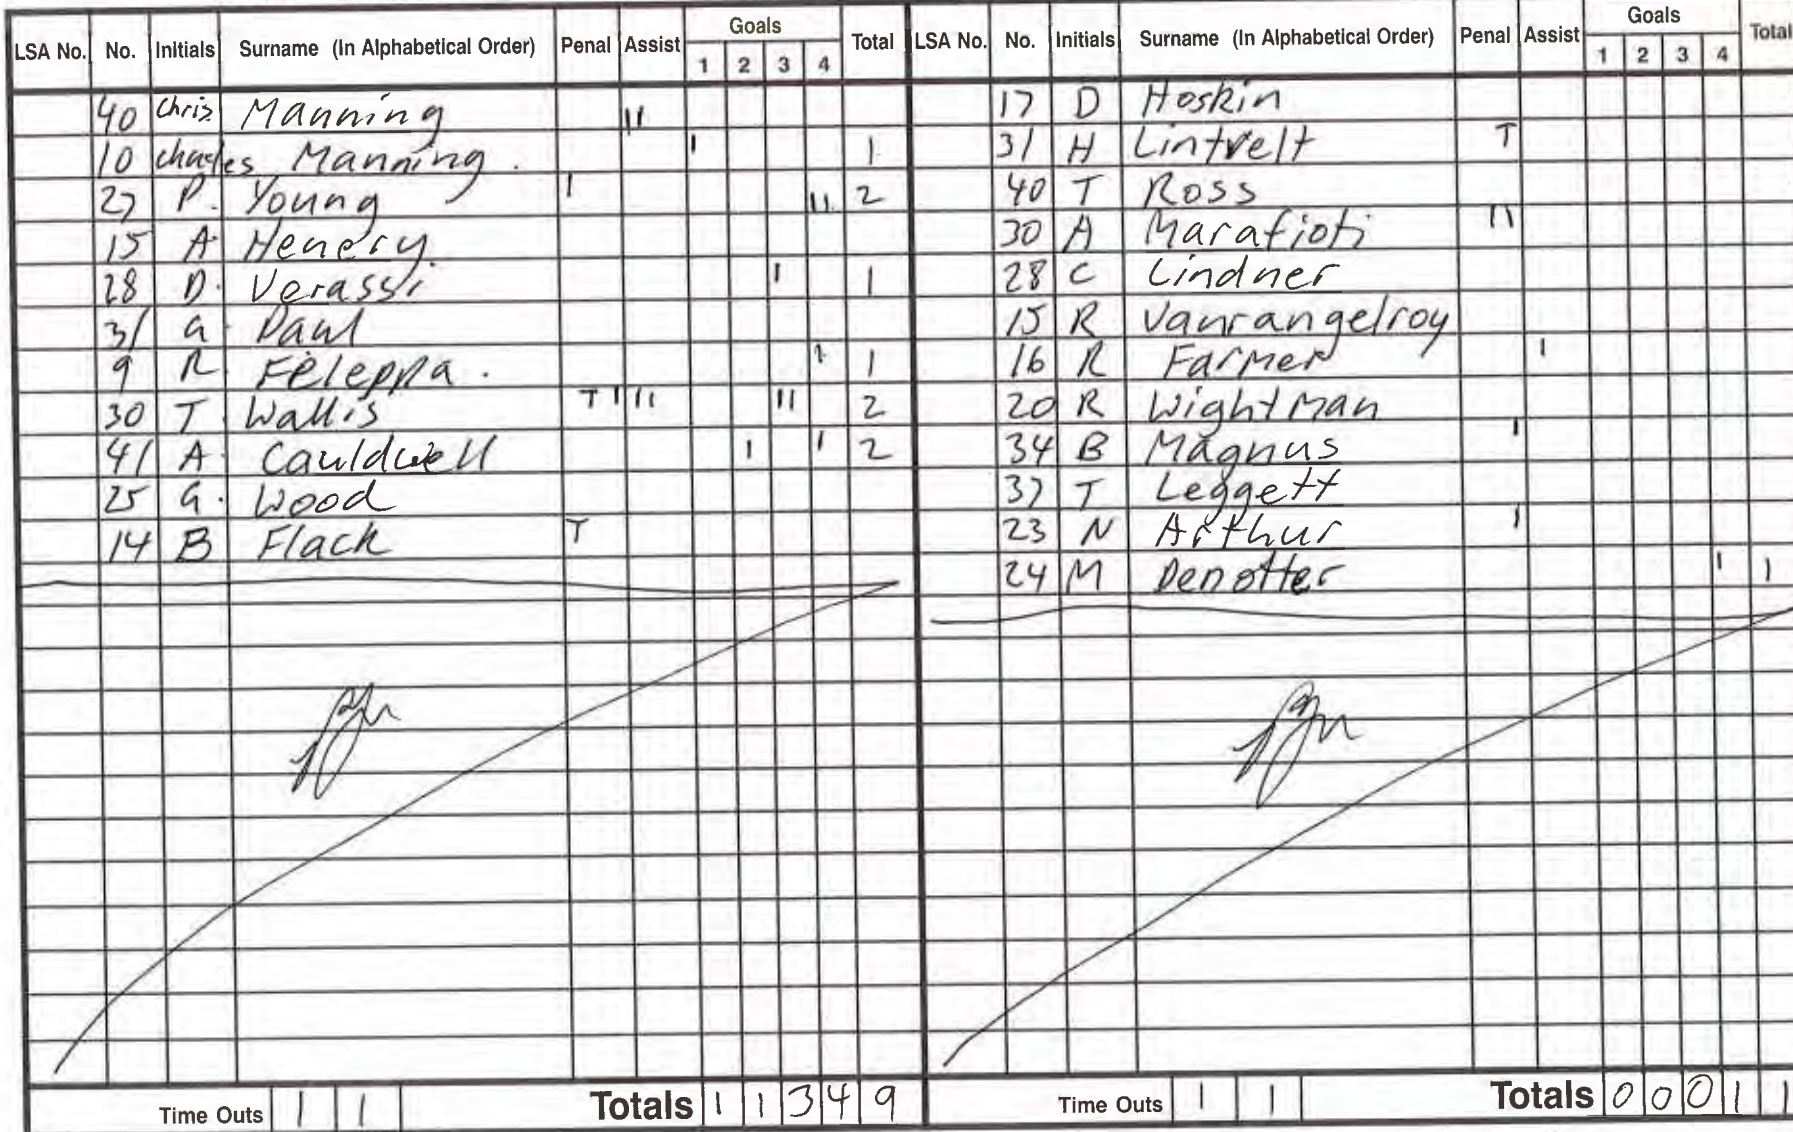 LSA No. No. Initials Surname (In Alphabetical Order) Penal Assist Goals 1 2 3 4 Total
40 Chris Manning 11
10 Charles Manning. 1 1
27 P. Young 1 11 2
15 A. Henery
28 D. Verassi 1 1
31 G. Paul
9 R. Feleppa. 1 1
30 T Wallis T 1 11 11 2
41 A. Cauldwell 1 1 2
25 G. Wood
14 B Flack T
Time Outs 1 1 Totals 1 1 3 4 9
LSA No. No. Initials Surname (In Alphabetical Order) Penal Assist Goals 1 2 3 4 Total
17 D Hoskin
31 H Lintvelt T
40 T Ross
30 A Marafioti 11
28 C Lindner
15 R Vanrangelroy
16 R Farmer 1
20 R Wightman
34 B Magnus 1
37 T Leggett
23 N Arthur 1
24 M Denotter 1 1
Time Outs 1 1 Totals 0 0 0 1 1